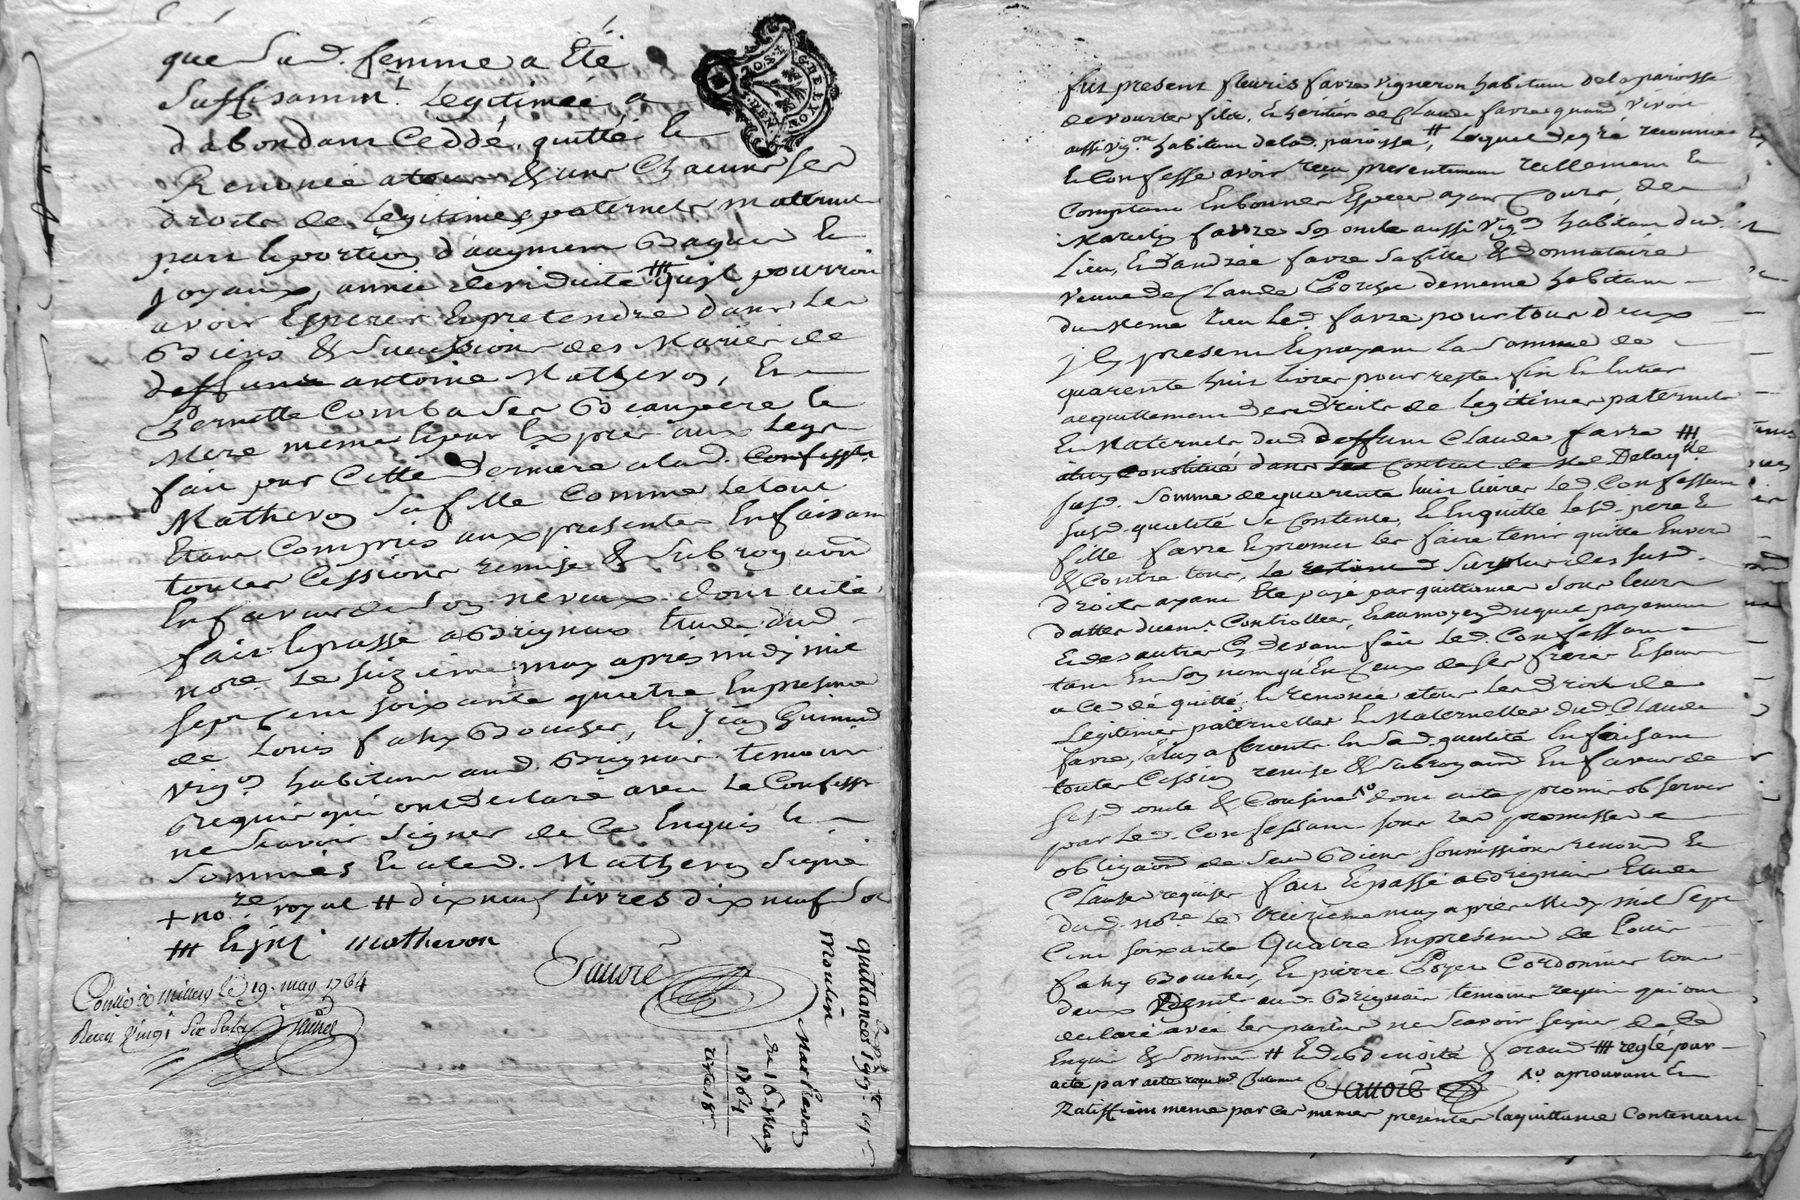 que Sad. femme a Eté
Suffisamm.t Legitimée a
d'abondant Ceddé, quitté et
Renoncé a tous & uns Chacuns Ses
droits de Legitimes paternels maternels
part et portion d'augment Bagues et
joyaux, année de viduité ⧻ qu'il pourroit
avoir Esperer et pretendre dans les
Biens & Successions des Mariés de
deffunts antoine Mathevon, Et
Pernette Combas Ses Beaupere et
Mere meme et par Exprés aux Legs
fait par Cette derniere a lad. Confess.te
Mathevon Sa fille Comme le tout
Etant Compris aux presentes En faisant
toutes Cessions remise & Subrogaõn
En faveur de Son neveux. dont acte,
fait et passé a Brignais Etude dud.
no.re Le Seizieme may après midy mil
Sept Cent soixante quatre En presence
de Louis fahy Boucher, et Jean Guimard
vig.on habitants aud. Brignais temoins
requis qui ont declaré avec Le Confess.t
ne Scavoir Signer de Ce Enquis et
Sommés Et a led. Mathevon Signé
+ no.re royal # dix neuf Livres dix neuf Sols
⧻ et pt mathevon
Favre
Conllé a Millery le 19. may 1764
Recu vingt Six Sols Favre
GNE.LYON
quittances 199.ll 19 s.
Moulin
Mathevon
du 16 May
1764
fut present fleuris favre vigneron habitant de la paroisse
de vourles fils, Et heritier de Claude favre quand vivoit
aussi vig.on habitant de lad. paroisse, # Lequel de gré reconnoit
Et Confesse avoir reçu presentement réellement Et
Comptant En bonnes Especes ayant Cours, de
Marcelin favre Son oncle aussi Vig.on habitant dud.
Lieu, Et d'andrée favre Sa fille & donnataire
veuve de Claude Poyet de meme habitante
du meme Lieu Led. favre pour tous deux
icy present Et payant La Somme de
quarente huit Livres pour reste fin Et Entier
acquittement des droits de Legitimes paternels
Et Maternels dud deffunt Claude favre ⧻
Susd. Somme de quarente huit Livres Led. Confessant
Susd. qualité Se Contente, Et En quitte Lesd. pere Et
fille favre Et promet les faire tenir quitte Envers
& Contre tous, Le restant Surplus des Susd.
droits ayant Eté payé par quittances Sous Leurs
dattes duem.t Controllées, Et au moyen duquel payement
Et des autres Cy devant fait Led. Confessant
tant En Son nom qu'En Ceux de Ses freres Et Soeurs
a Ceddé quitté, et renoncé a tous Les droits de
Legitimes paternelles Et Maternelles dud. Claude
favre, a luy aferents En Sad. qualité En faisant
toutes Cession remise & Subrogaõn En faveur de
Sesd. oncle & Cousine 1° dont acte, promis observer
par Led. Confessant Sous Ses promesses
obligaõns de Sesd Biens Soumissions renonõns Et
Clauses requises fait Et passé a Brignais Etude
dud. no.re Le treizieme may après Midy Mil Sept
Cent Soixante Quatre En presence de Louis
fahy Boucher, Et pierre Poyet Cordonnier tous
deux Dem.ts aud. Brignais temoins requis qui ont
declaré avec les parties ne Scavoir Signer de Ce
Enquis & Sommés # Et de Benoite favard ⧻ reglé par
acte par acte 1° aprouvant Et
Favre
Ratiffiant meme par Ces memes presentes la quittance Contenant